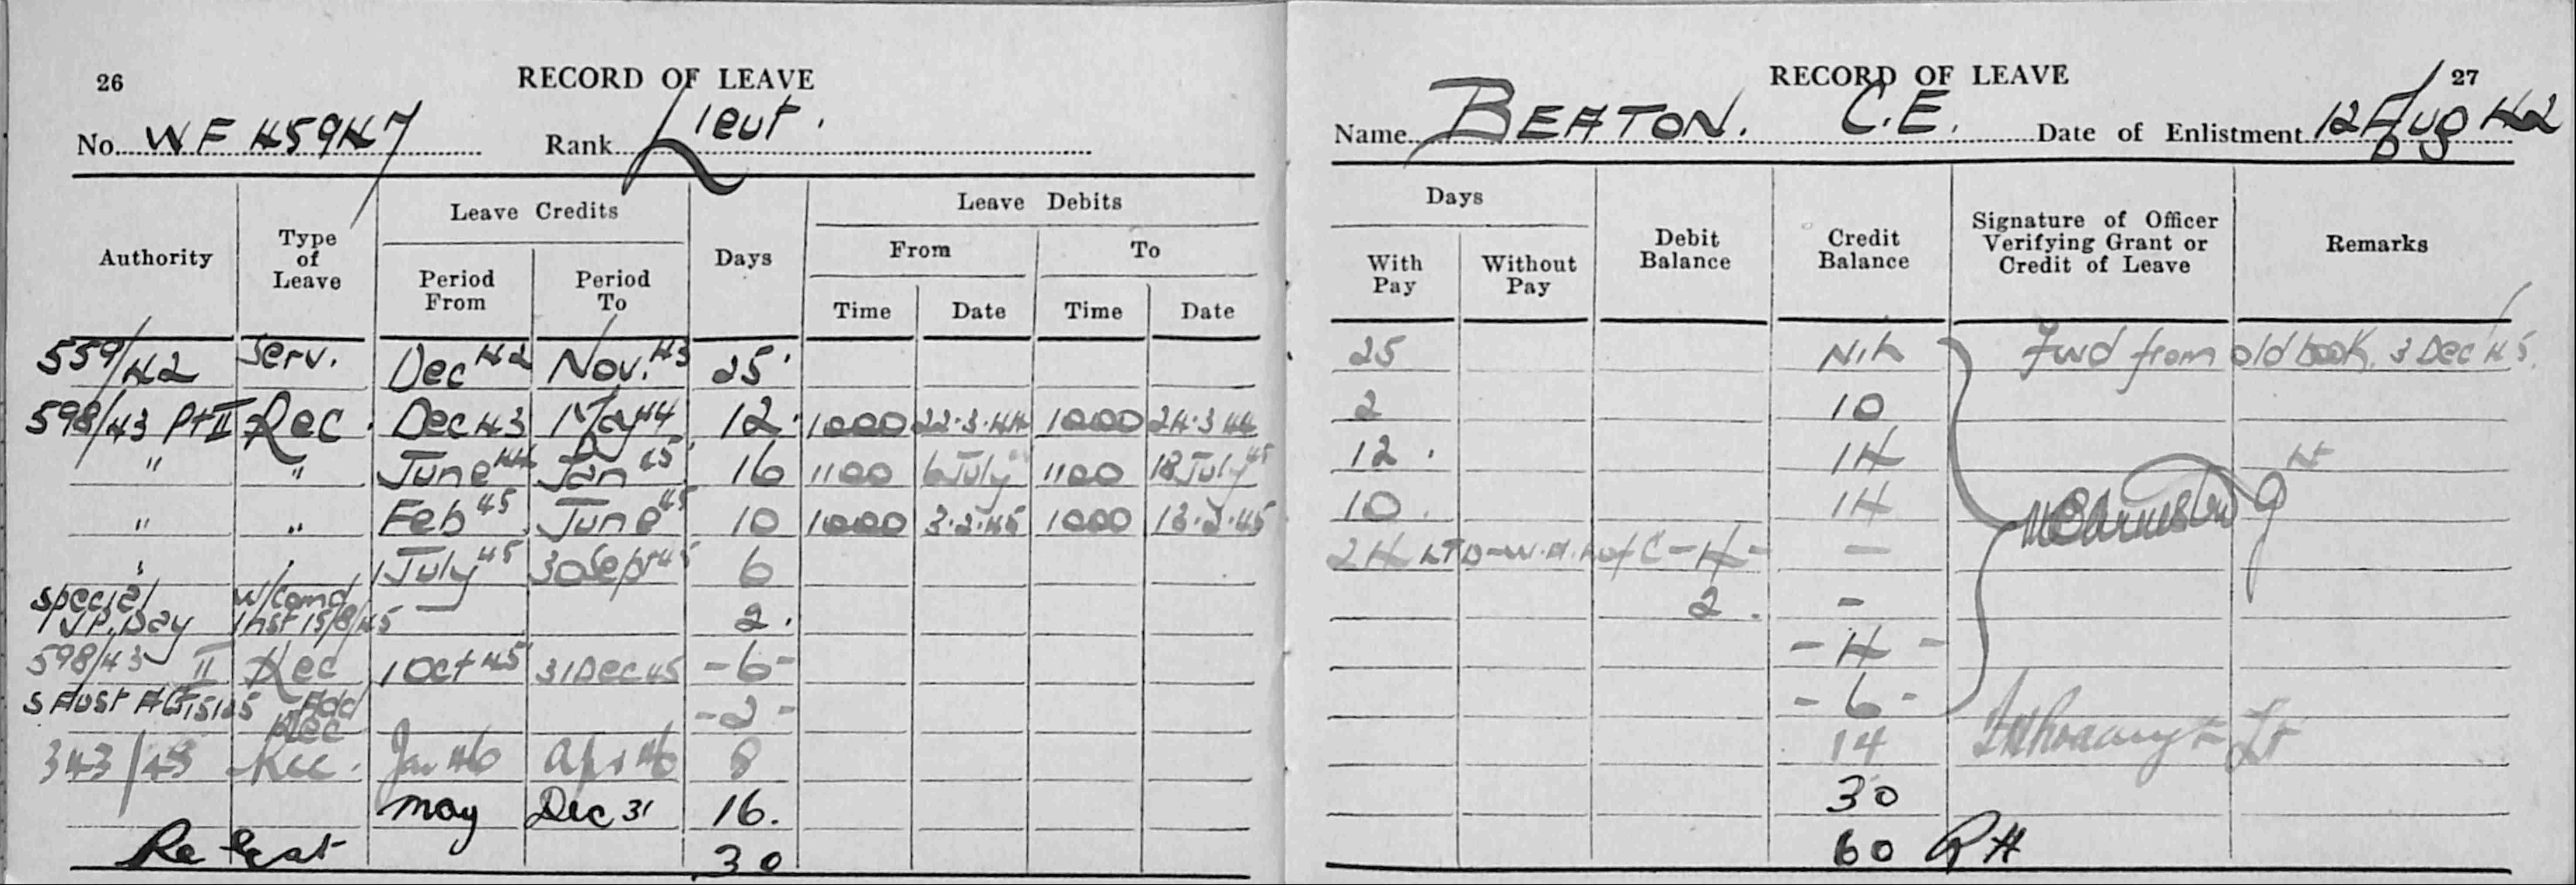 26 RECORD OF LEAVE
No. WF 45947 Rank Lieut.
Authority Type of Leave Leave Credits Period From Period To Days Leave Debits From Time Date To Time Date
559/42 Serv. Dec 42 Nov. 43 25
598/43 Pt II Rec. Dec 43 May 44 12. 1000 22.3.44 1000 24.3.44
" " June 44 Jan 45 16 1100 6 July 1100 18 July 45
" " Feb 45 June 45 10 1000 3.2.45 1000 13.2.45
" 1 July 45 30 Sept 45 6
Special V.P. Day W/Comd Inst 15/8/45 2.
598/43 II Rec 1 Oct 45 31 Dec 45 -6-
Add Rec -2-
343/43 Rec. Jan 46 Apr 46 8
May Dec 31 16.
Re 30
RECORD OF LEAVE 27
Name BEATON. C.E. Date of Enlistment 12 Aug 42
Days With Pay Without Pay Debit Balance Credit Balance Signature of Officer Verifying Grant or Credit of Leave Remarks
25 Nil Fwd from old book. 3 Dec 45.
2 10
12. 14
10. 14
24 -4- —
2. -
-4-
-6-
14 Lt
30
60 RH